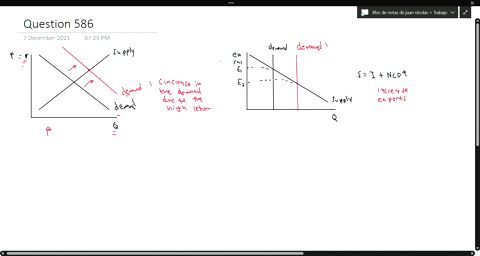 Bloc de notas de juan nicolas > Trabajo
Question 586
7 December 2021 07:29 PM
supply
demand 1
demand
Q
increase in
the demand
due to the
high return
demand demand 1
E1
E2
supply
Q
increase
exports